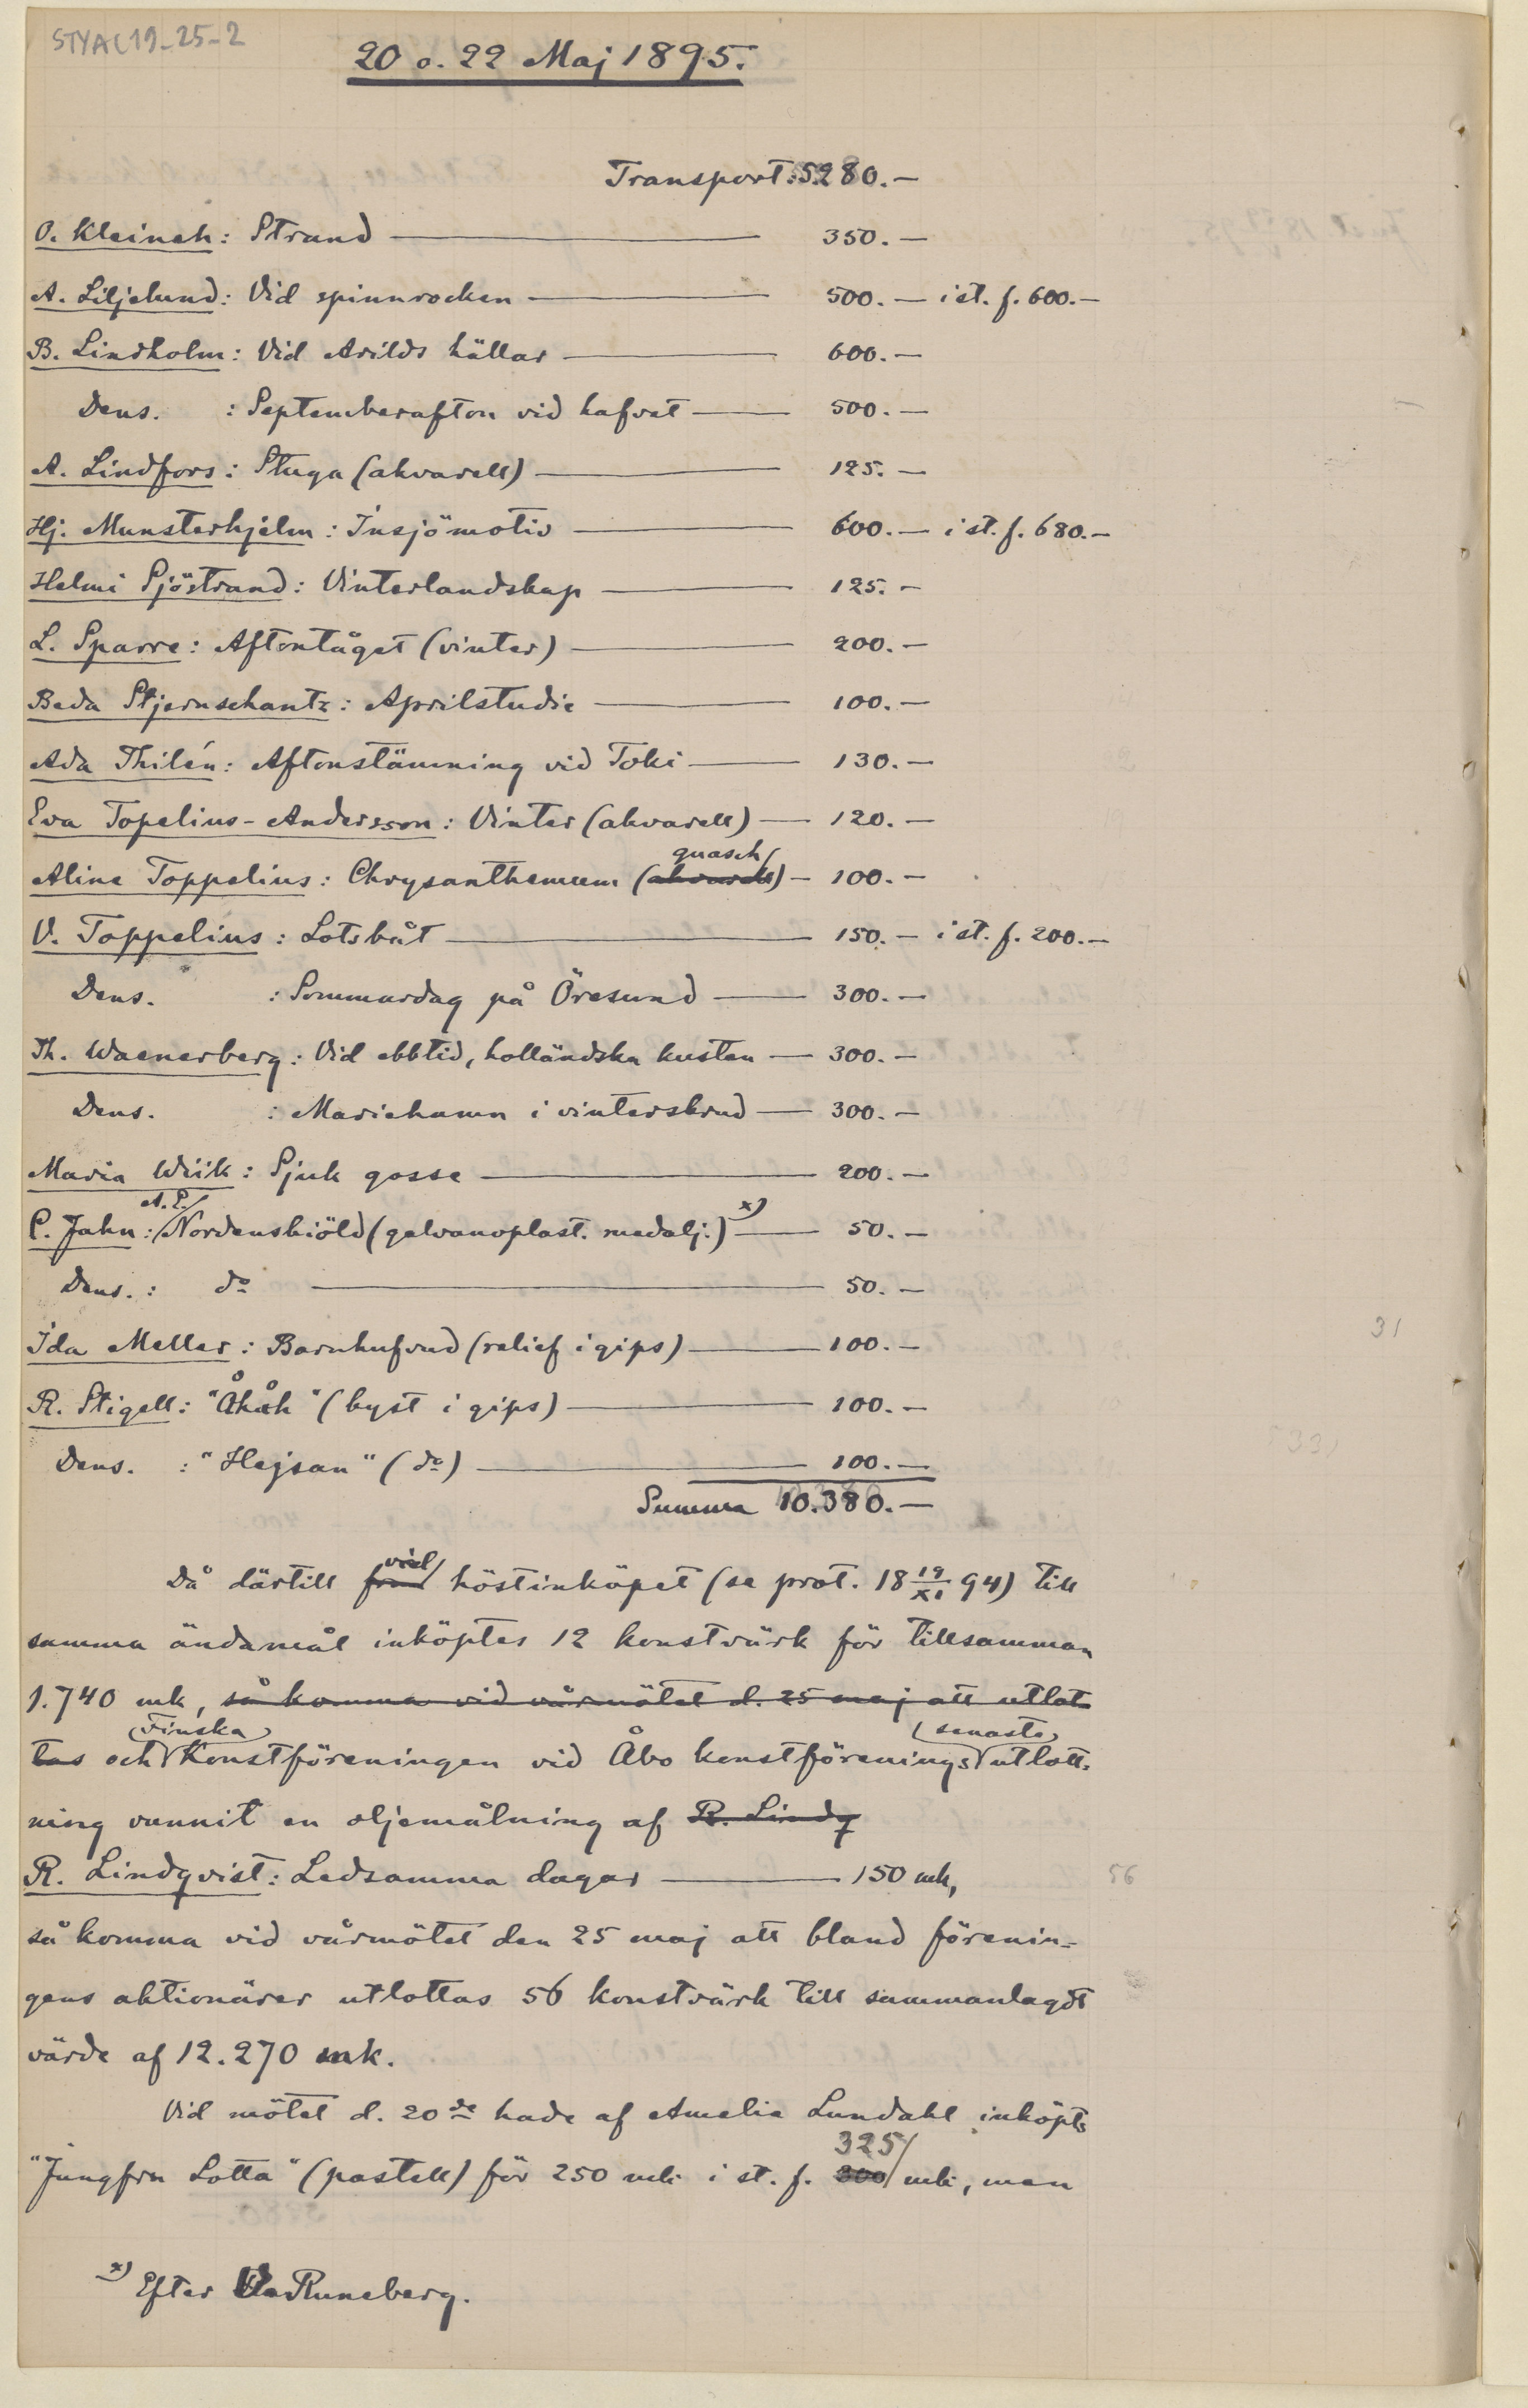 STYA(19-25-2
20 o. 22 Maj 1895.
Transport: 5280.—
O. Kleineh: Strand — 350.—
A. Liljelund: Vid spinnrocken — 500.— i st. f. 600.—
B. Lindholm: Vid Arilds hällar — 600.—
Dens. : Septemberafton vid hafvet — 500.—
A. Lindfors: Stuga (akvarell) — 125.—
Hj. Munsterhjelm: Insjömotiv — 600.— i st. f. 680.—
Helmi Sjöstrand: Vinterlandskap — 125.—
L. Sparre: Aftontåget (vinter) — 200.—
Beda Stjernschantz: Aprilstudie — 100.—
Ada Thilén: Aftonstämning vid Toki — 130.—
Eva Topelius-Andersson: Vinter (akvarell) — 120.—
guasch
Alina Toppelius: Chrysanthemum (akvarell) — 100.—
V. Toppelius: Lotsbåt — 150.— i st. f. 200.—
Dens. : Sommardag på Öresund — 300.—
Th. Waenerberg: Vid ebbtid, holländska kusten — 300.—
Dens. : Mariehamn i vinterskrud — 300.—
Maria Wiik: Sjuk gosse — 200.—
A. E.
C. Jahn: Nordenskiöld (galvanoplast. medalj.) x) — 50.—
Dens. : do — 50.—
Ida Meller: Barnhufvud (relief i gips) — 100.—
31
R. Stigell: "Åhåh" (byst i gips) — 100.—
Dens. : "Hejsan" (do) — 100.—
33
Summa 10.380.—
vid
Då därtill från höstinköpet (se prot. 18 19/XI 94) till
samma ändamål inköptes 12 konstvärk för tillsamman
1.740 mk, så komma vid vårmötet d. 25 maj att utlot
Finska senaste
tas och Konstföreningen vid Åbo konstförenings utlott-
ning vunnit en oljemålning af R. Lindq
R. Lindqvist: Ledsamma dagar — 150 mk,
56
så komma vid vårmötet den 25 maj att bland förenin-
gens aktionärer utlottas 56 konstvärk till sammanlagdt
värde af 12.270 mk.
Vid mötet d. 20de hade af Amelie Lundahl inköpts
325
"Jungfru Lotta" (pastell) för 250 mk i st. f. 300 mk, men
x) Efter Runeberg.